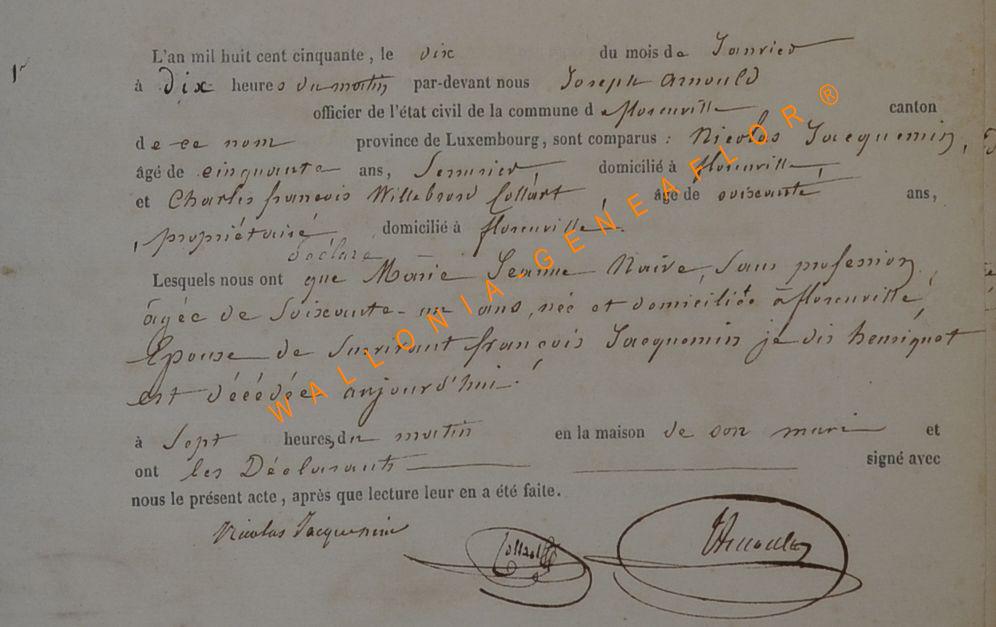 1r
L'an mil huit cent cinquante, le dix du mois de Janvier
à dix heures du matin par-devant nous Joseph Arnould
officier de l'état civil de la commune d florenville canton
de ce nom province de Luxembourg, sont comparus : Nicolas Jacquemin,
âgé de cinquante ans, Serrurier domicilié à florenville
et Charles françois Willebrord Collart âgé de soixante ans,
propriétaire domicilié à florenville.
déclaré
Lesquels nous ont que Marie Jeanne Naive, sans profession,
âgée de Soixante-un ans, née et domiciliée à florenville,
Epouse de Survivant françois Jacquemin je dis henriquet
est décédée aujourd'hui
à Sept heures, du matin en la maison de son mari et
ont les Déclarants signé avec
nous le présent acte, après que lecture leur en a été faite.
Nicolas Jacquemin Collart Arnould
WALLONIA-GENEAFLOR ®